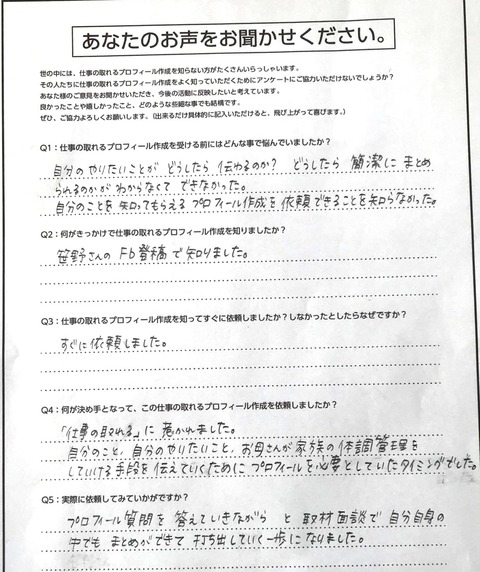 あなたのお声をお聞かせください。
世の中には、仕事の取れるプロフィール作成を知らない方がたくさんいらっしゃいます。
その人たちに仕事の取れるプロフィール作成をよく知っていただくためにアンケートにご協力いただけないでしょうか？
あなた様のご意見をお聞かせいただき、今後の活動に反映したいと考えています。
良かったことや嬉しかったこと、どのような些細な事でも結構です。
ぜひ、ご協力よろしくお願いします。（出来るだけ具体的に記入いただけると、飛び上がって喜びます。）
Q1：仕事の取れるプロフィール作成を受ける前にはどんな事で悩んでいましたか？
自分のやりたいことが どうしたら 伝わるのか？ どうしたら 簡潔に まとめ
られるのかが わからなくて できなかった。
自分のことを 知ってもらえる プロフィール作成を 依頼できることを 知らなかった。
Q2：何がきっかけで仕事の取れるプロフィール作成を知りましたか？
笹野さんの Fb登稿で 知りました。
Q3：仕事の取れるプロフィール作成を知ってすぐに依頼しましたか？しなかったとしたらなぜですか？
すぐに依頼しました。
Q4：何が決め手となって、この仕事の取れるプロフィール作成を依頼しましたか？
「仕事の取れる」に 惹かれました。
自分のこと、自分のやりたいこと、お母さんが家族の 体調管理を
していける 手段を 伝えていくために プロフィールを必要としていたタイミングでした。
Q5：実際に依頼してみていかがですか？
プロフィール質問を 答えていきながら と 取材面談で 自分自身の
中でも まとめができて 打ち出していく一歩になりました。